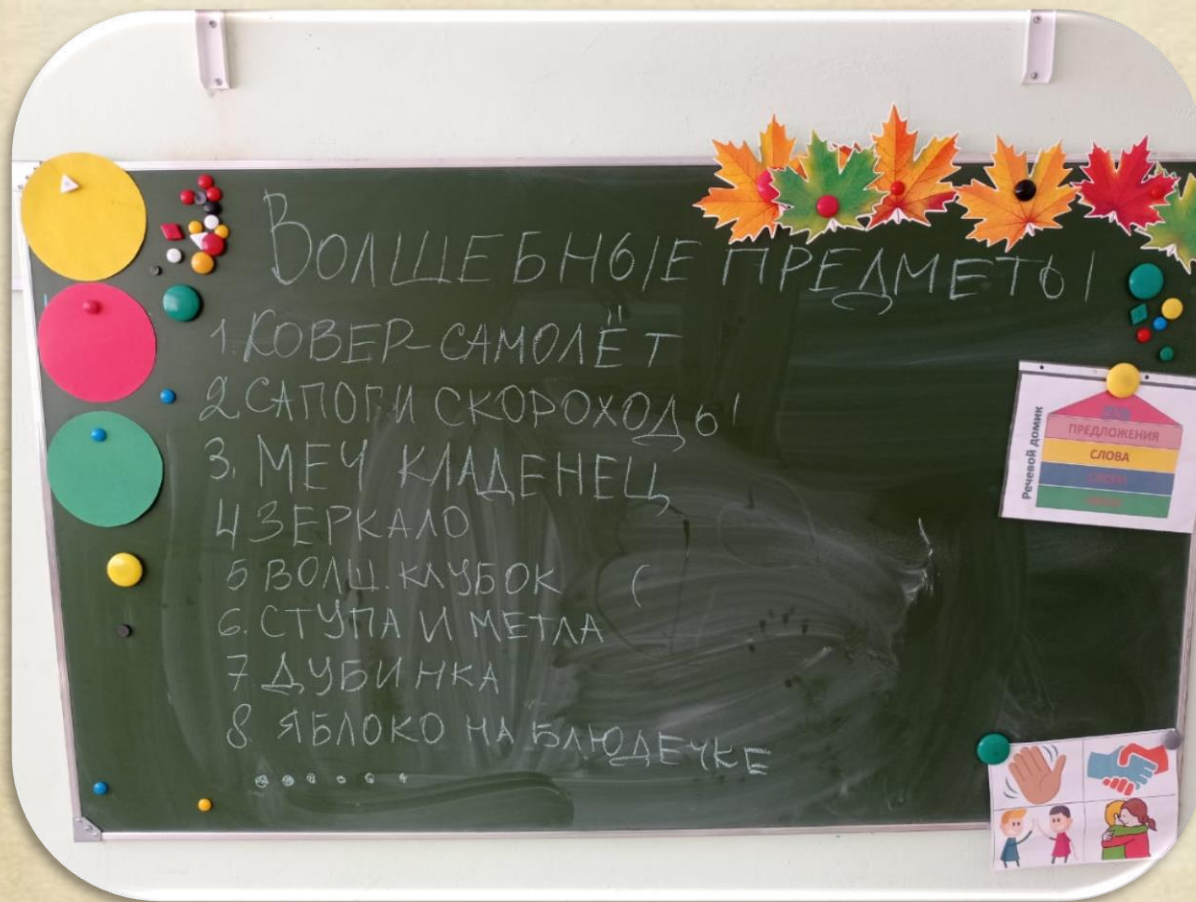 ВОЛШЕБНЫЕ ПРЕДМЕТЫ
1. КОВЕР-САМОЛЁТ
2 САПОГИ СКОРОХОДЫ
3. МЕЧ КЛАДЕНЕЦ
4 ЗЕРКАЛО
5 ВОЛШ. КЛУБОК
6. СТУПА И МЕТЛА
7 ДУБИНКА
8 ЯБЛОКО НА БЛЮДЕЧКЕ
Речевой домик
ПРЕДЛОЖЕНИЯ
СЛОВА